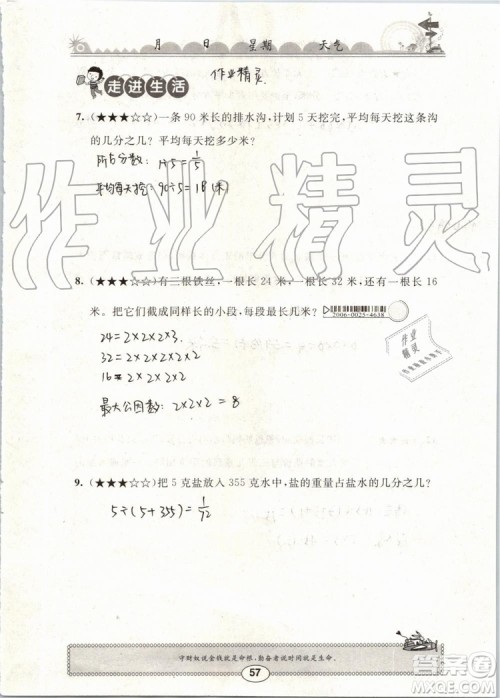 月 日 星期 天气
走进生活 作业精灵
7.(★★★☆☆)一条 90 米长的排水沟,计划 5 天挖完,平均每天挖这条沟
的几分之几?平均每天挖多少米?
所占分数:1÷5=1/5
平均每天挖:90÷5=18(米)
作业精灵
8.(★★★☆☆)有三根铁丝,一根长 24 米,一根长 32 米,还有一根长 16
米。把它们截成同样长的小段,每段最长几米?
2006-0025-4638
24=2×2×2×3.
32=2×2×2×2×2
16=2×2×2×2
最大公因数:2×2×2=8
作业
精灵
9.(★★★☆☆)把 5 克盐放入 355 克水中,盐的重量占盐水的几分之几?
5÷(5+355)=1/72
守财奴说金钱就是命根,勤奋者说时间就是生命。
57
答案圈
MXQE.COM